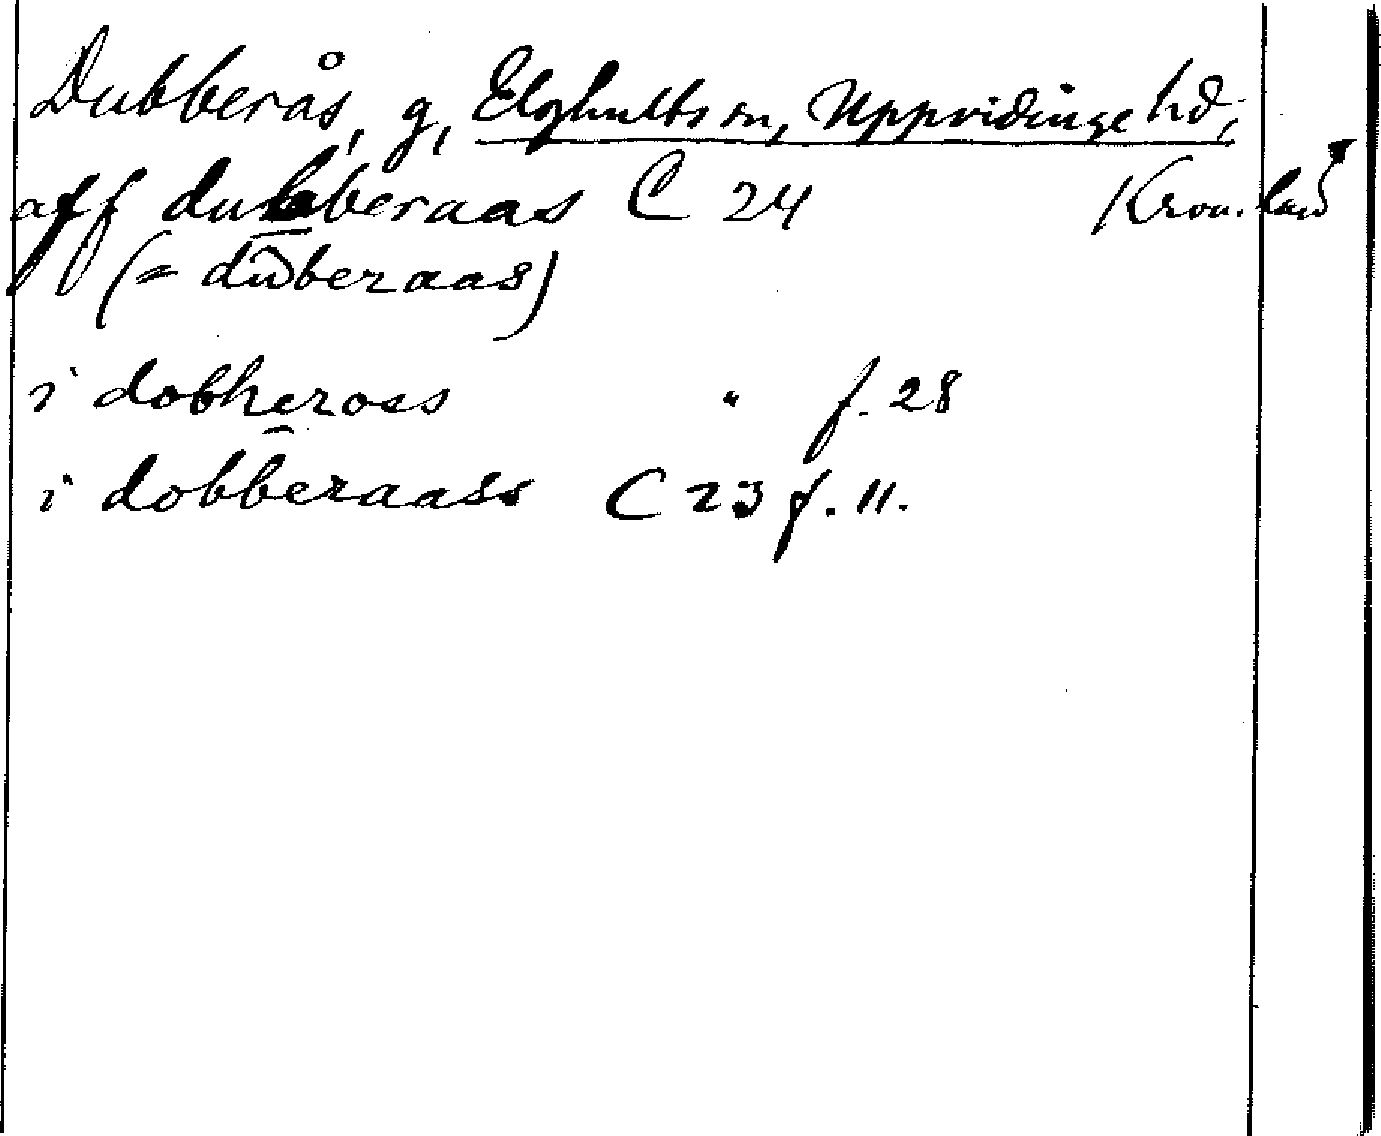 Dubberås, g, Elghults sn, Uppvidinge hd,
aff dubberaas C 24 Kron. län
(= duberaas)
i dobheross " f. 28
i dobberaass C 23 f. 11.